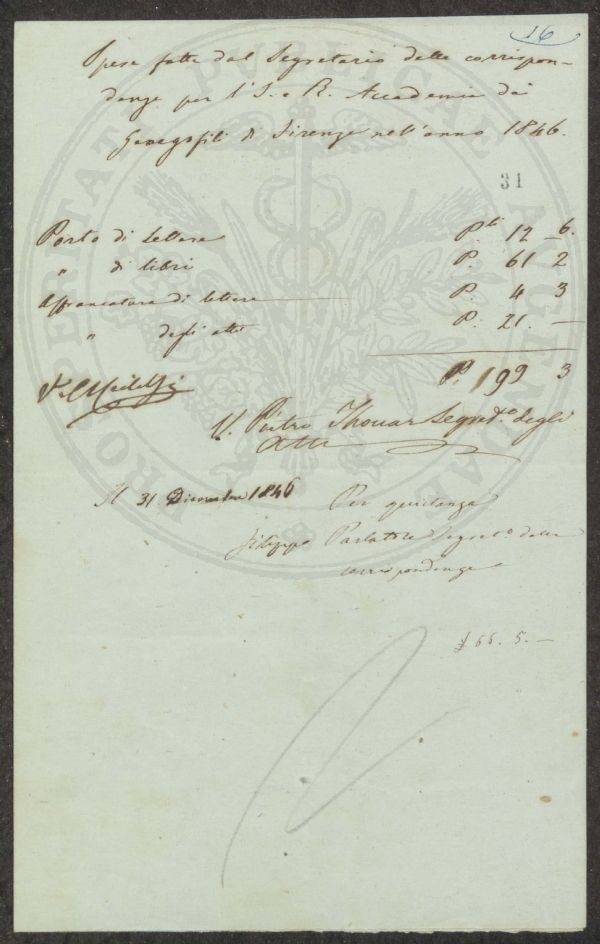 16
Spese fatte dal Segretario delle corrispon-
denze per l'I. e R. Accademia dei
Georgofili di Firenze nell'anno 1846.
31
Porto di lettere P.li 12 – 6.
" di libri P. 61 2
Affrancatura di lettere P. 4 3
" degli atti P. 21. —
P. 199 3
V. Pietro Thouar Segret.o degli
Atti
Il 31 Dicembre 1846
Per quietanza
Filippo Parlatore Segret.o delle
corrispondenze
£ 66. 5. —
PROSPERITATI PUBLICAE AUGENDAE